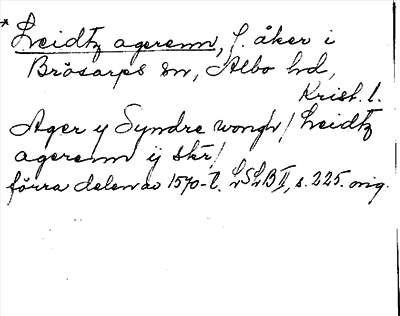 * Leidtz agerenn, f. åker i
Brösarps sn, Albo hd,
Krist. l.
Ager y Syndre wongh / Leidtz
agerenn ij skr /
förra delen av 1570-t. LSLB II, s. 225. orig.